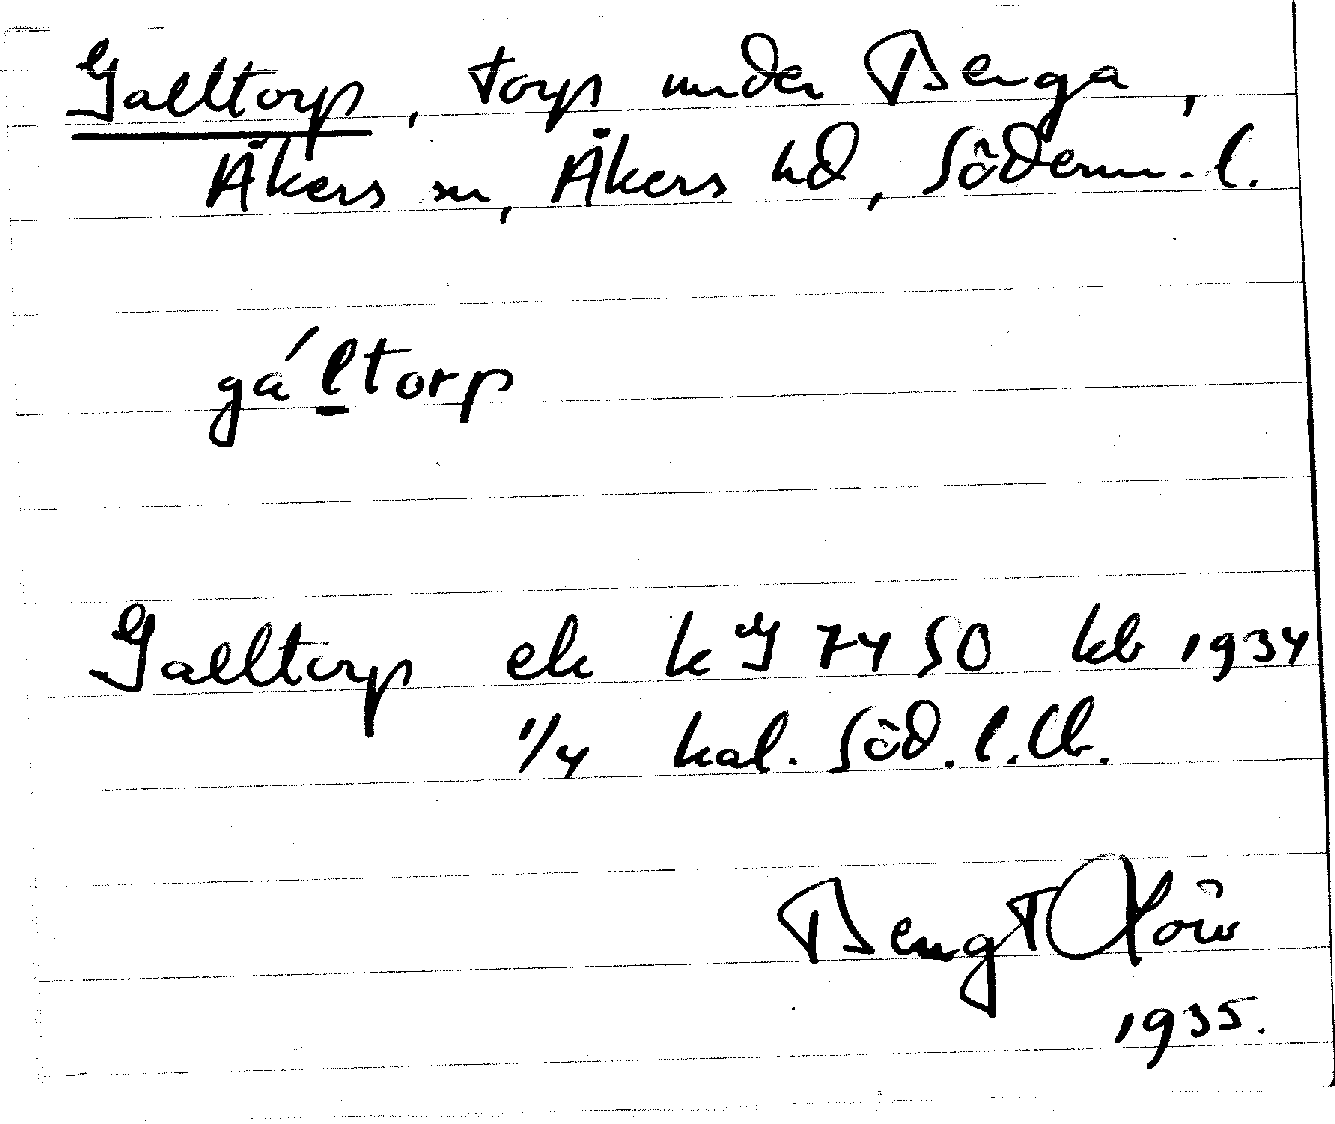 Galltorp, torp under Berga,
Åkers sn, Åkers hd, Söderm. l.
gáltorp
Galltorp ek kJ 7450 kb 1934
1/4 hal. Söd. l. Cb.
Bengt
1935.